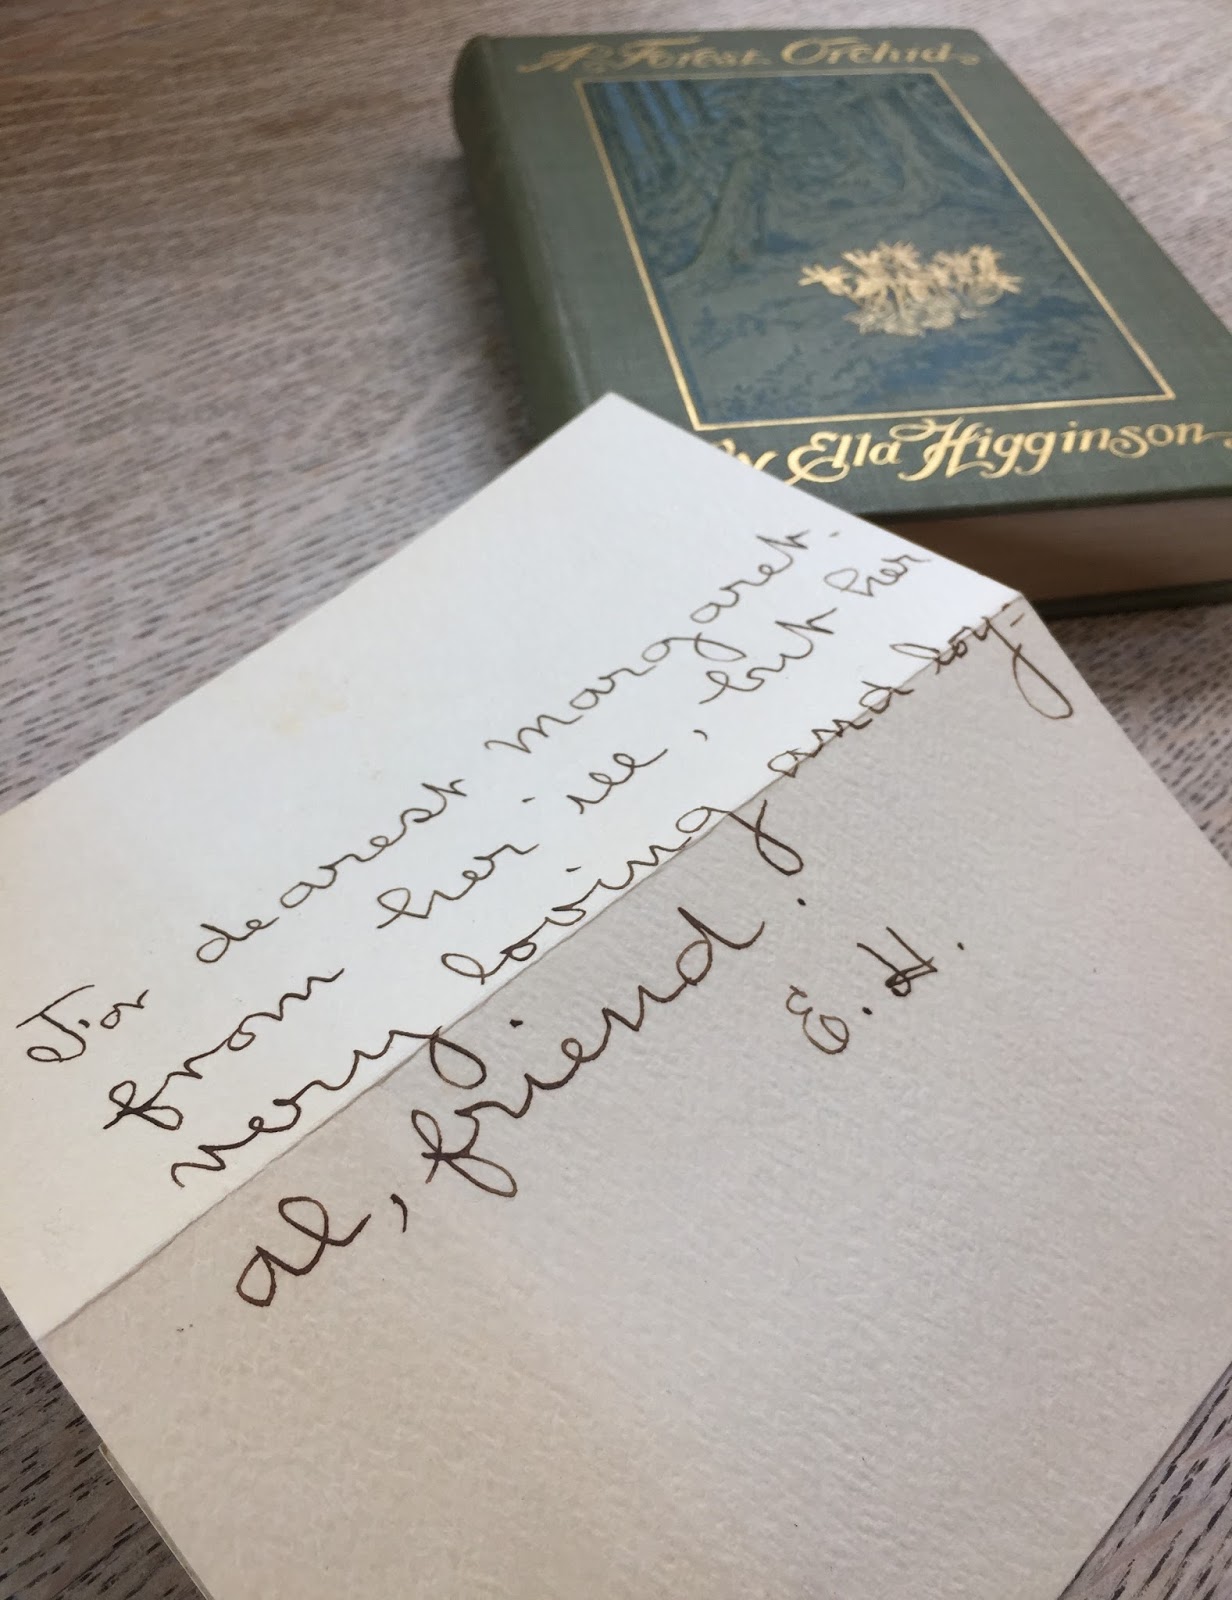 A Forest Orchid
By Ella Higginson
For dearest Margaret.
from her ill, but her
very loving and loy-
al, friend.
E. H.